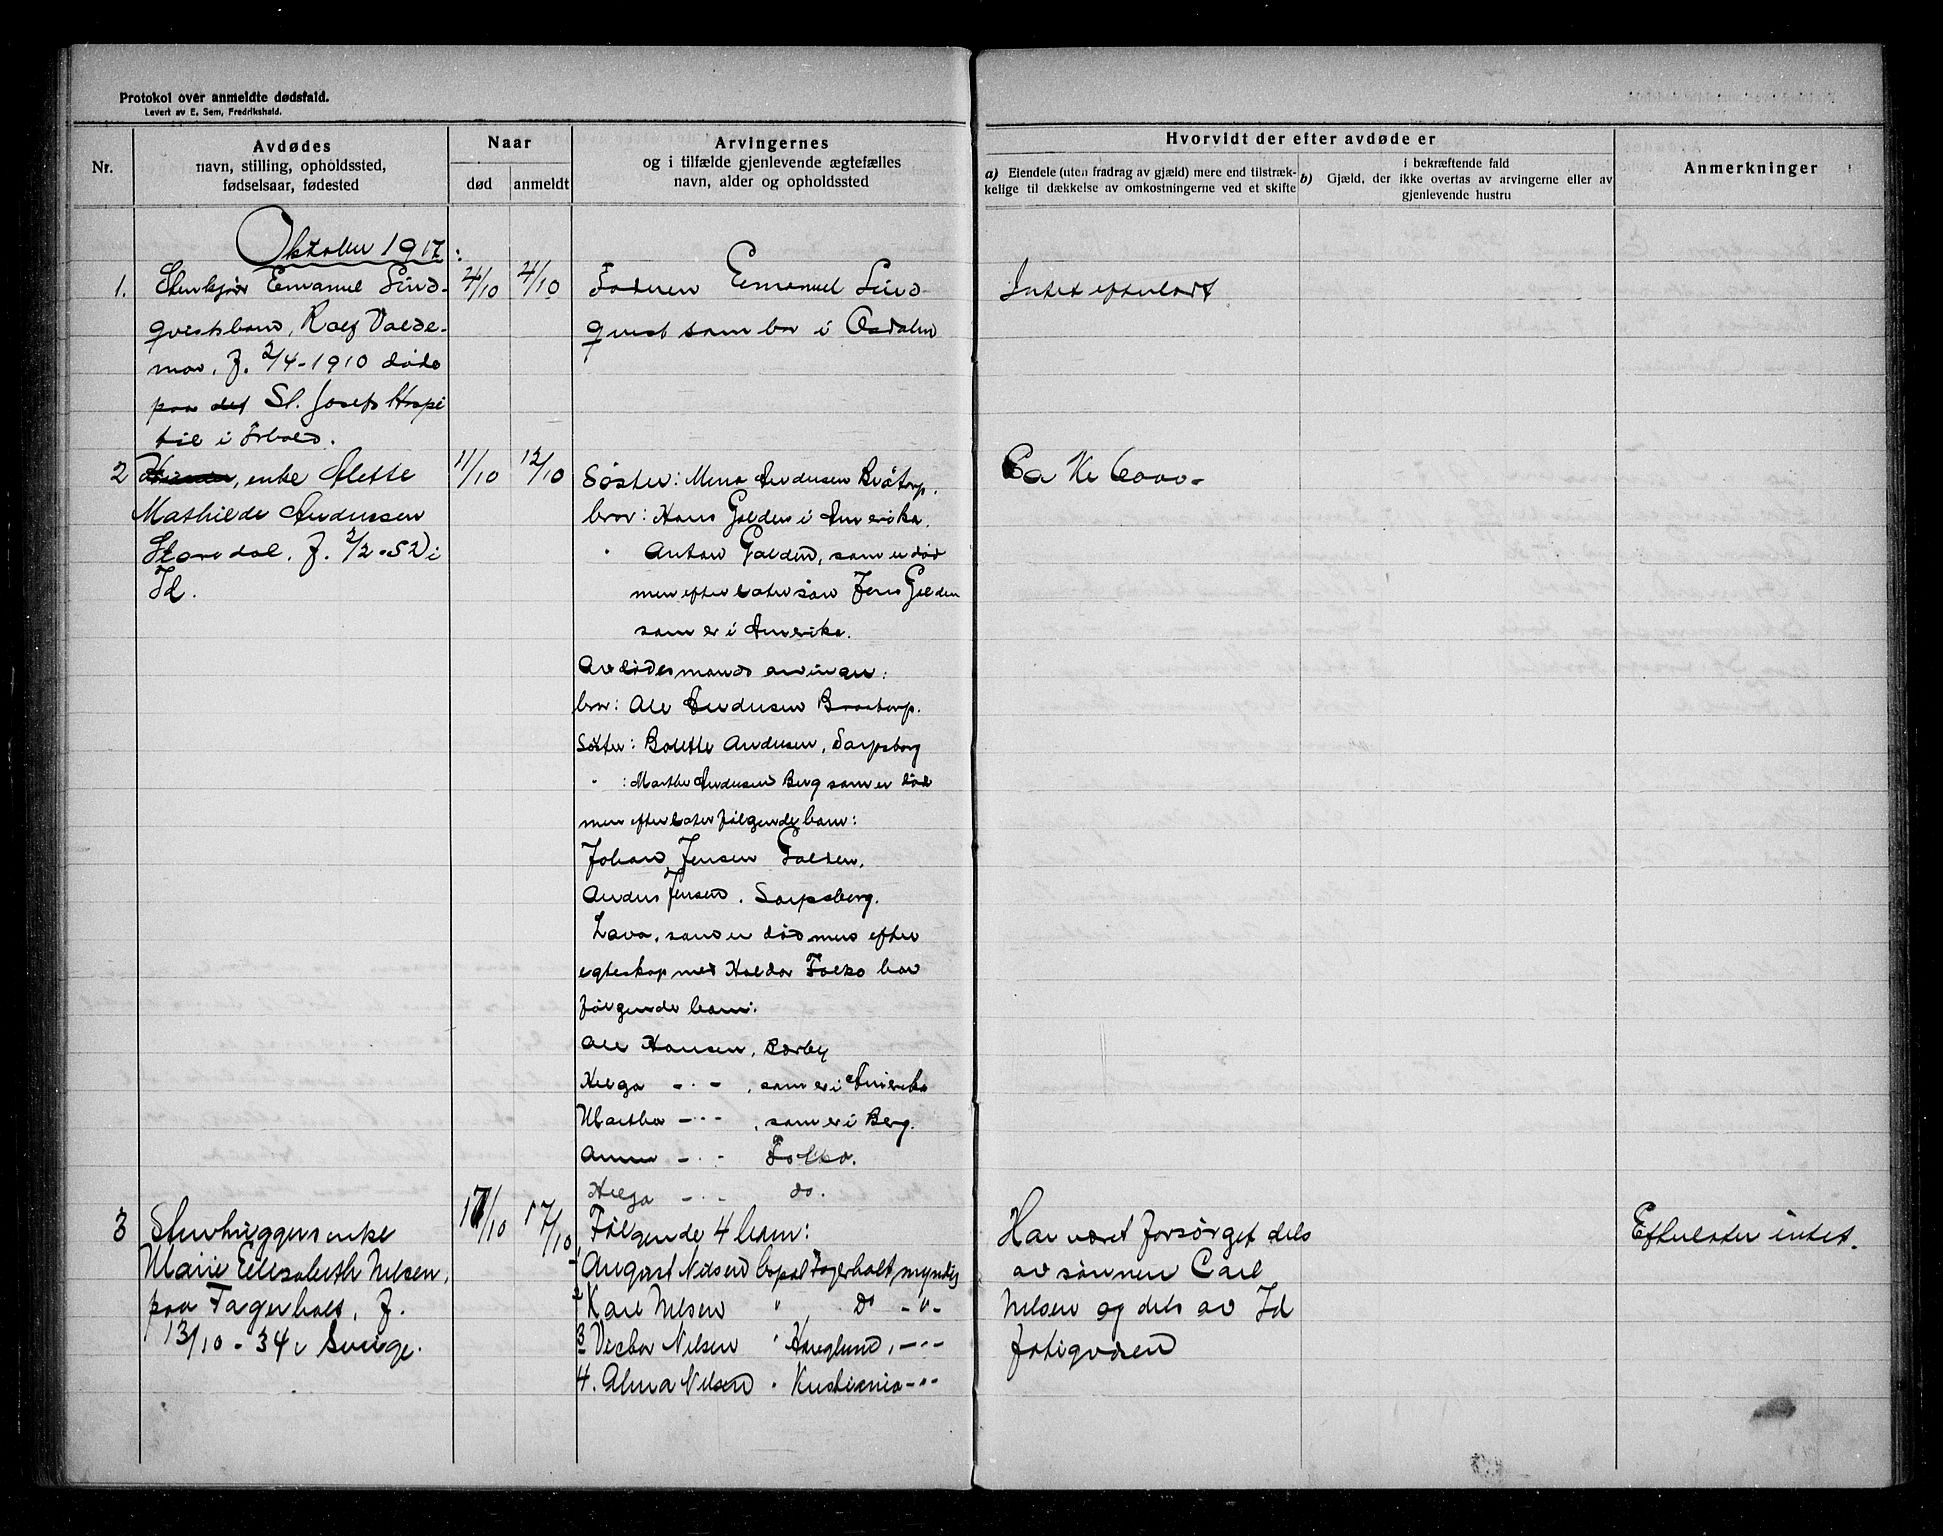 Protokol over anmeldte dødsfald.
Levert av E. Sem, Fredrikshald.
Nr.
Avdødes
navn, stilling, opholdssted,
fødselsaar, fødested
Naar
død
anmeldt
Arvingernes
og i tilfælde gjenlevende ægtefælles
navn, alder og opholdssted
Hvorvidt der efter avdøde er
a) Eiendele (uten fradrag av gjæld) mere end tilstræk-
kelige til dækkelse av omkostningerne ved et skifte
i bekræftende fald
b) Gjæld, der ikke overtas av arvingerne eller av
gjenlevende hustru
Anmerkninger
Oktober 1917:
1. Emanuel Lind-
qvists barn, Rolf Valde-
mar, f. 2/4-1910 døde
paa det St. Josefs Hospi
tal i Frhald.
4/10
4/10
Faderen Emanuel Lind-
qvist som bor i
Intet efterladt
2 enke Alette
Mathilde Andersen
Storedal, f. 2/2-52 i
Id.
11/10
12/10
Søster: Mina Andersen Bråtorp.
bror: Hans Galden i Amerika.
" Anton Galden, som er død
men efterlater søn Jens Galden
som er i Amerika.
Avdødes mands arvinger:
bror: Ole Andersen Braatorp.
Søster: Bolette Andersen, Sarpsborg
" : Marthe Andersen Berg som er død
men efterlater følgende barn:
Johan Jensen Galden.
Anders Jensen. Sarpsborg.
Lava, som er død men efter
egteskap med Haldor Folko har
følgende barn:
Ole Hansen, Bærby
Helga - " - , som er i Amerika
Martha - " - , som er i Berg.
Anna - " - Folko.
Helga - " - do.
Ca Kr 6000.-
3 Stenhuggerenke
Marie Elisabeth Nilsen,
paa Fagerholt, f.
13/10-34 i Sverige.
17/10
17/10
Følgende 4 barn:
1 August Nilsen bopæl Fagerholt, myndig
2 Karl Nilsen " do - " -
3 Victor Nilsen " , - " -
4. Alma Nilsen " Kristiania - " -
Har været forsørget dels
av sønnen Carl
Nilsen og dels av Id
fatigvæsen
Efterlater intet.